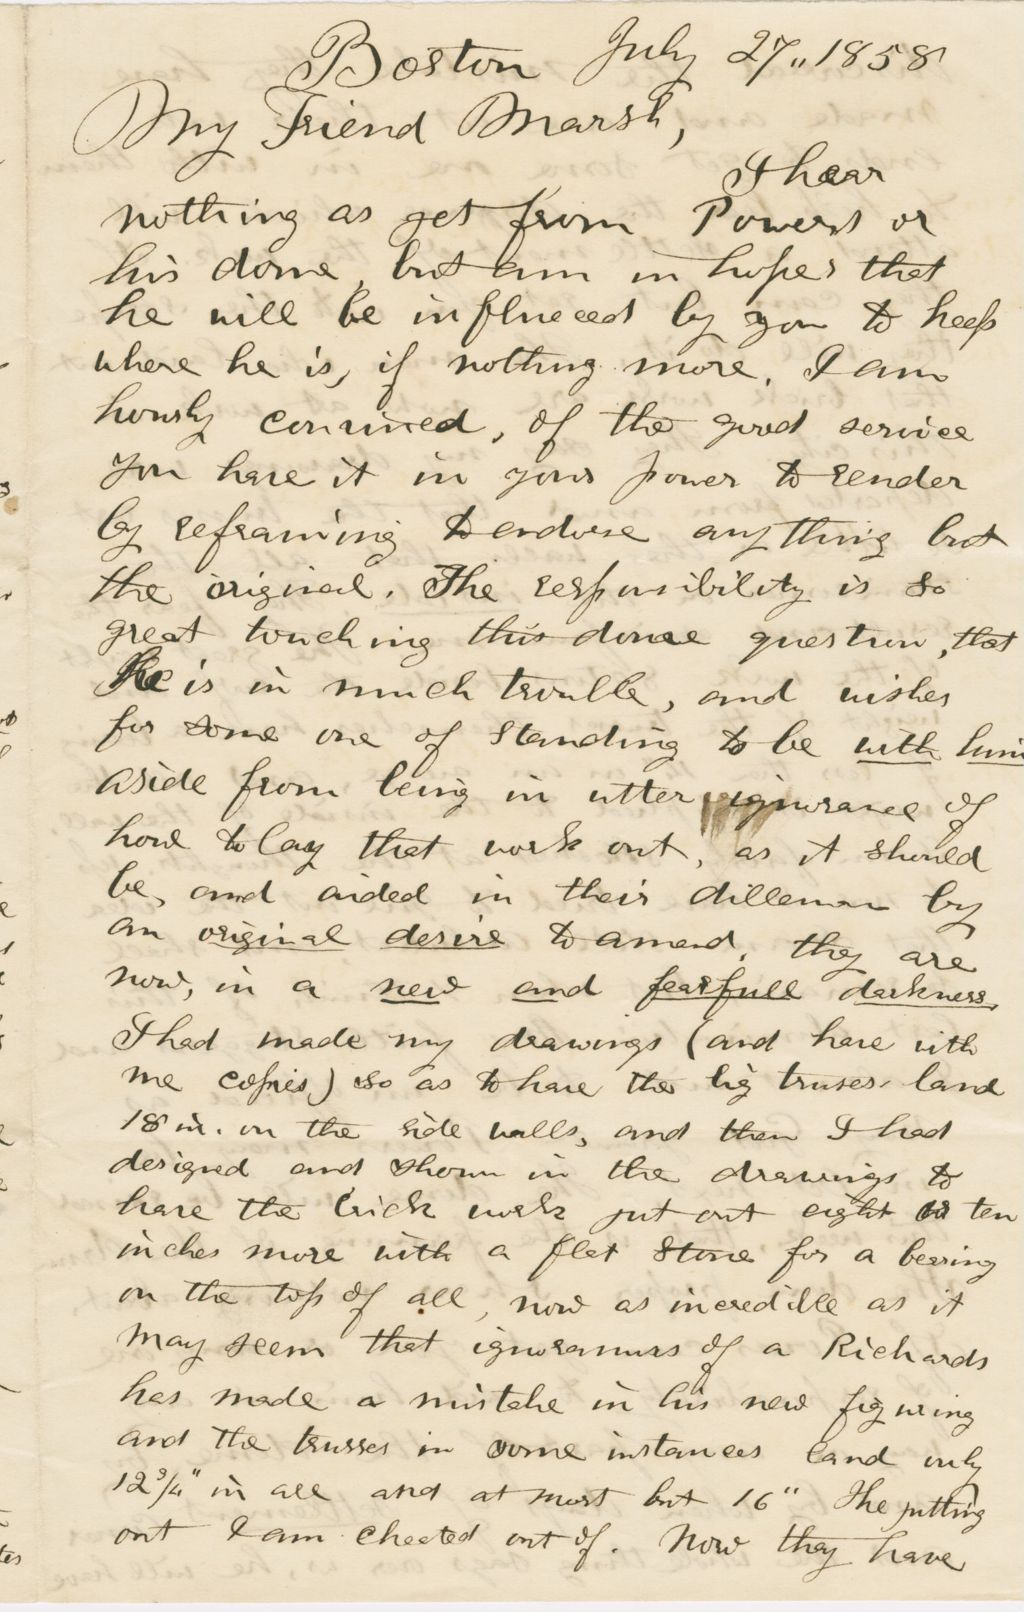 Boston July 27,, 1858
My Friend Marsh,
I hear
nothing as yet from Powers or
his dome, but am in hopes that
he will be influeced by you to keep
where he is, if nothing more. I am
hourly convined, of the good service
you have it in your power to render
by refraining to endorse anything but
the original. The responsibility is so
great touching this dome question, that
He is in much trouble, and wishes
for some one of standing to be with him
aside from being in utter ignorance of
how to lay that work out, as it should
be, and aided in their dillemma by
an original desire to amend, they are
now, in a new and fearfull darkness,
I had made my drawings (and have with
me copies) so as to have the big truses land
18 in. on the side walls, and then I had
designed and shown in the drawings to
have the brick work jut out eight or ten
inches more with a flat stone for a bearing
on the top of all, now as incredible as it
may seem that ignoramus of a Richards
has made a mistake in his new figuring
and the trusses in some instances land only
12 3/4" in all and at most but 16" The jutting
out I am cheated out of. Now they have